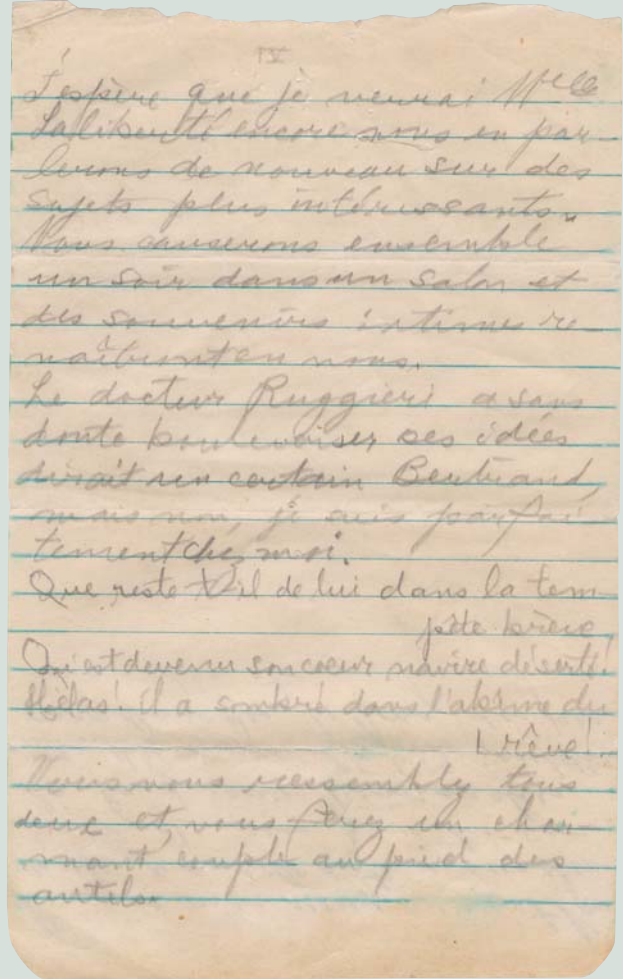 IV
J'espère que je verrai Melle
Laliberté encore nous en par
lerons de nouveau sur des
sujets plus intéressants.
Nous causerons ensemble
un soir dans un salon et
des souvenirs intimes re-
naîtront en nous.
Le docteur Ruggieri a sans
doute bouleverser ses idées
dirait un certain Bertrand,
mais non, je suis parfai
tement chez moi.
Que reste t'il de lui dans la tem
pête brève,
Qu'est devenu son coeur navire déserté!
Hélas! il a sombré dans l'abîme du
rêve!
Vous vous ressembly tous
deux et, vous ferez un char-
mant couple au pied des
autels.